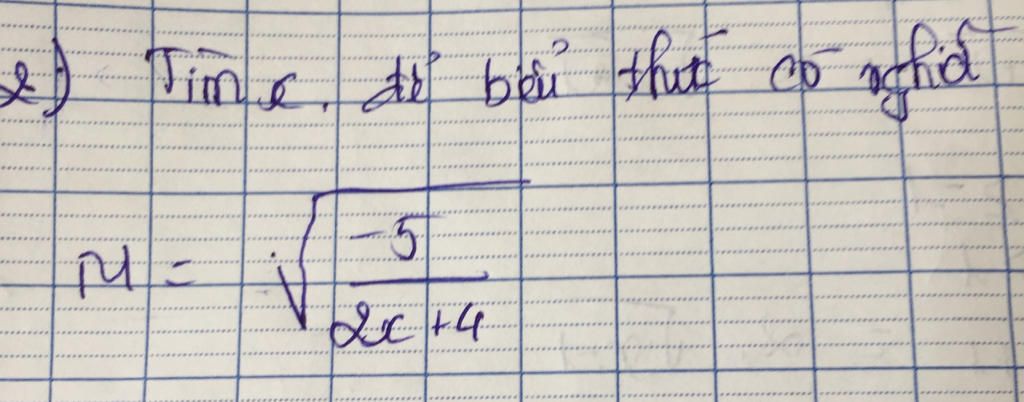 2) Tìm x, để biểu thức có nghĩa
M = √(-5 / (2x + 4))